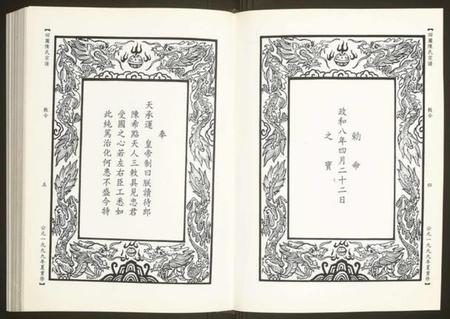 【回圖陳氏宗譜
敕令
四
公元一九九九年夏重修】
勅命
政和八年四月二十二日
之寶
【回圖陳氏宗譜
敕令
五
公元一九九九年夏重修】
奉
天承運　皇帝制曰朕讀待郎
陳希點天人三敕具見忠君
愛國之心若左右臣工悉如
此純篤治化何患不盛今特